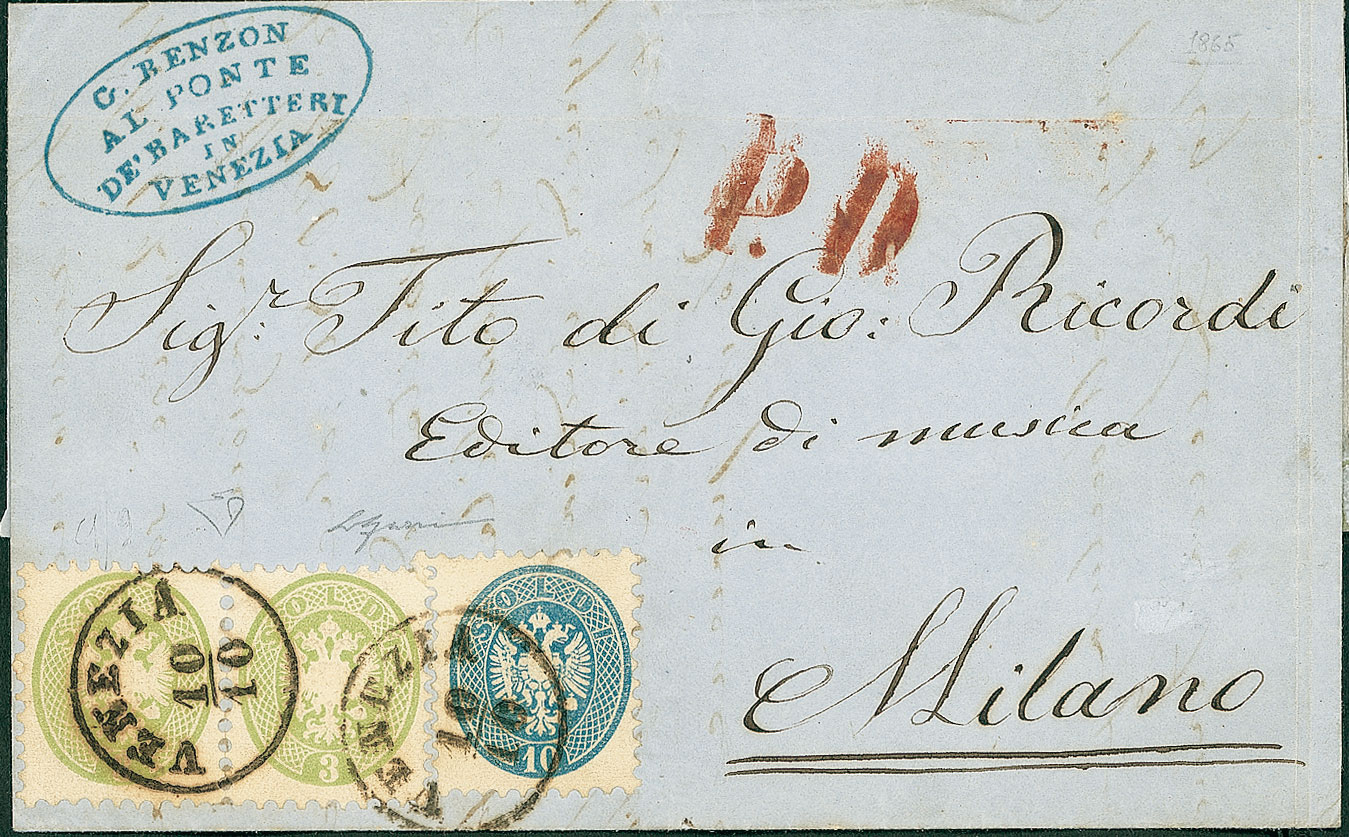 G. BENZON
AL PONTE
DE' BARETTERI
IN
VENEZIA
1865
P. D
Sig.r Tito di Gio: Ricordi
Editore di musica
in
Milano
SOLDI
SOLDI
3
SOLDI
10
VENEZIA
10
10
VENEZIA
10
10